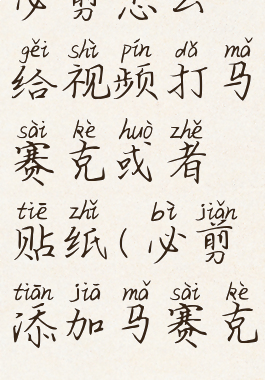 必剪怎么
gěi shì pín dǎ mǎ
给视频打马
sài kè huò zhě
赛克或者
tiē zhǐ bì jiǎn
贴纸(必剪
tiān jiā mǎ sài kè
添加马赛克